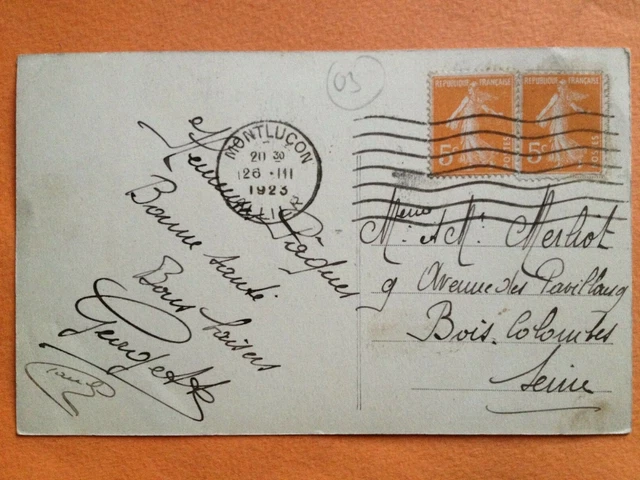 03
MONTLUÇON
20 30
26 · III
1923
ALLIER
REPUBLIQUE FRANÇAISE
5c
POSTES
REPUBLIQUE FRANÇAISE
5c
POSTES
Heureuses Pâques
Bonne santé
Bons baisers
Georgette
Meme et Mr Merliot
9 Avenue des Pavillons 9
Bois. Colombes
Seine